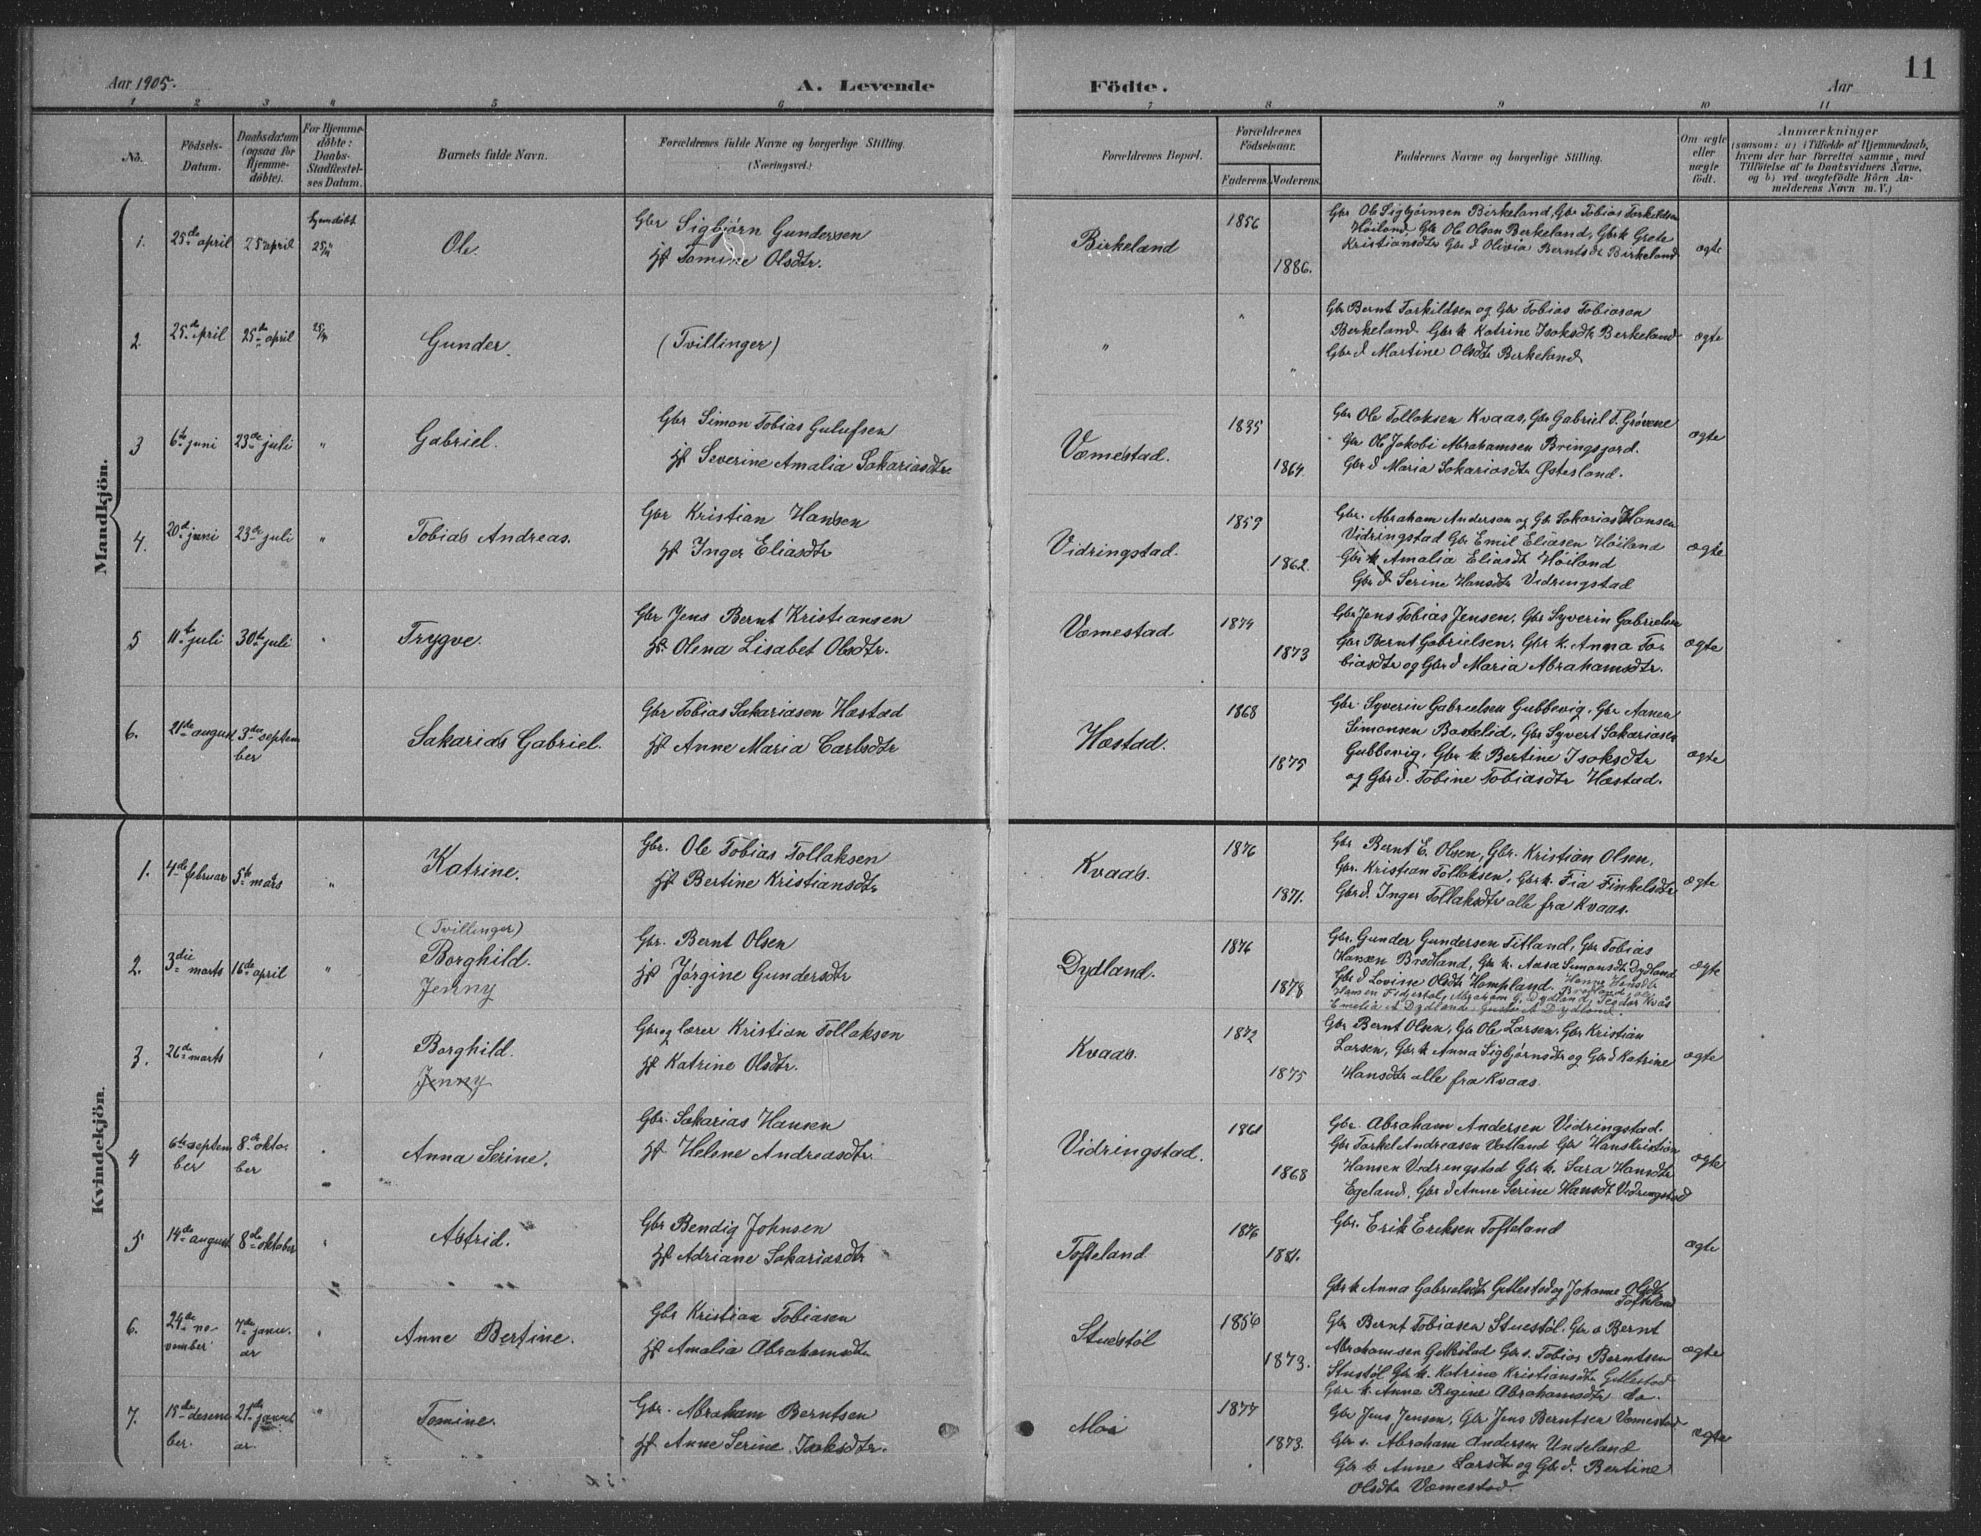 Aar 1905. A. Levende Födte. Aar 11
1 2 3 4 5 6 7 8 9 10 11
No. Födsels-Datum. Daabsdatum (ogsaa for Hjemmedöbte). For Hjemmedöbte: Daabs-Stadfæstelses Datum. Barnets fulde Navn. Forældrenes fulde Navne og borgerlige Stilling. (Næringsvei.) Forældrenes Bopæl. Forældrenes Födselsaar. Faderens. Moderens. Faddernes Navne og borgerlige Stilling. Om ægte eller uægte födt. Anmærkninger
(saasom: a) i Tilfælde af Hjemmedaab, hvem der har forrettet samme, med Tilföielse af to Daabsvidners Navne, og b) ved uægtefödte Börn Anmelderens Navn m. V.)
Mandkjön.
1. 25de april 25 april hjemdöbt 25/4 Ole. Gbr Sigbjørn Gundersen
Hst Tomine Olsdtr. Birkeland 1856 1886.
Gbr Ole Sigbjørnsen Birkeland, Gbr Tobias Torkildsen
Höiland Gbr Ole Olsen Berkeland, Gbrk Grete
Kristiansdtr Gbr d Olivia Berntsdr Birkeland ægte
2. 25de april 25de april 25/4 Gunder. (Tvillinger) " " "
Gbr Bernt Torkildsen og Gbr Tobias Tobiasen
Berkeland. Gbr k Katrine Isaksdtr Berkeland
Gbr d Martine Olsdtr Birkeland ægte
3 6te juni 23de juli " Gabriel. Gbr Simon Tobias Gulufsen
Hst Severine Amalia Sakariasdtr Væmestad. 1835 1864.
Gbr Ole Tollaksen Kvaas, Gbr Gabriel T. Grövene
Gbr Ole Jakobi Abrahamsen Bringsjord.
Gbr d Maria Sakariasdtr Østesland. ægte
4. 20de juni 23de juli " Tobias Andreas. Gbr Kristian Hansen
Hst Inger Eliasdtr Vidringstad. 1859 1862.
Gbr. Abraham Andersen og Gbr Sakarias Hansen
Vidringstad Gbr Emil Eliasen Höiland
Gbr k Amalia Eliasdtr Höiland
Gbr d Serine Hansdtr Vidringstad ægte
5 11te juli 30te juli " Trygve. Gbr Jens Bernt Kristiansen
Hst Olena Lisabet Olsdtr. Væmestad 1874 1873
Gbr Jens Tobias Jensen, Gbr Syverin Gabrielsen
Gbr Bernt Gabrielsen, Gbr k. Anna To-
biasdtr og Gbr d Maria Abrahamsdtr. ægte
6. 21de august 3die septem
ber Sakarias Gabriel. Gbr Tobias Sakariasen Hæstad
Hst Anne Maria Carlsdtr Hæstad. 1868 1875
Gbr. Syverin Gabrielsen Gubbevig, Gbr Aanen
Simonsen Bastelid, Gbr Syvert Sakariasen
Gubbevig, Gbr k Bertine Isaksdtr
og Gbr d. Tobine Tobiasdtr Hæstad. ægte
Kvindekjön.
1. 4de februar 5te mars " Katrine. Gbr. Ole Tobias Tollaksen
Hst Bertine Kristiansdtr Kvaas. 1876 1871.
Gbr Bernt E. Olsen, Gbr. Kristian Olsen,
Gbr. Kristian Tollaksen, Gbr k. Fia Finkelsdtr
Gbr d. Inger Tollaksdtr alle fra Kvaas. ægte
(Tvillinger)
2. 3die marts 16de april " Borghild.
Jenny Gbr. Bernt Olsen
Hst Jørgine Gundersdtr Dydland. 1876 1878
Gbr. Gunder Gundersen Titland, Gbr Tobias
Hansen Brodland, Gbr k. Aasa Simonsdtr Dydland
Gbr d Lovise Olsdtr Hompland. Hanna Hansdtr
Abraham G. Dydland, Teodor Kvås
Emelie A Dydland, A Dydland. ægte
3. 26de marts Borghild.
Jenny Gbr og lærer Kristian Tollaksen
Hst Katrine Olsdtr. Kvaas. 1872 1875
Gbr Bernt Olsen, Gbr Ole Larsen, Gbr Kristian
Larsen, Gbr k Anna Sigbjørnsdtr og Gbr d Katrine
Hansdtr alle fra Kvaas. ægte
4 6te septem
ber 8de okto-
ber Anna Serine. Gbr. Sakarias Hansen
Hst Helene Andreasdtr Vidringstad. 1861 1868
Gbr. Abraham Andersen Vidringstad.
Gbr Torkel Andreasen Vatland Gbr Hans Kristian
Hansen Vidringstad Gbr k. Sara Hansdtr
Egeland, Gbr d Anne Serine Hansdt Vidringstad ægte
5 14de august 8de oktober Astrid. Gbr Bendig Johnsen
Hst Adriane Sakariasdtr Tofteland 1876 1881.
Gbr. Erik Eriksen Tofteland ægte
Gbr k Anna Gabrielsdtr Gitlestad og Johanne Olsdtr
Tofteland
6. 24de no-
vember 7de janu-
ar Anne Bertine. Gbr Kristian Tobiasen
Hst Amalia Abrahamsdtr Stuestöl 1856 1873.
Gbr Bernt Tobiasen Stuestöl. Gbr s Bernt
Abrahamsen Gitlestad Gbr s. Tobias Berntsen
Stustöl Gbr k. Katrine Kristiansdtr Gitlestad
Gbr k. Anne Regine Abrahamsdtr do. ægte
7. 18de desem
ber. 21de janu
ar. " Tomine. Gbr. Abraham Berntsen
Hst Anne Serine Isaksdtr. Moi 1877 1873.
Gbr Jens Jensen, Gbr Jens Berntsen Væmestad
Gbr s. Abraham Andersen Undeland
Gbr k Anne Larsdtr og Gbr d. Bertine
Olsdtr Væmestad ægte